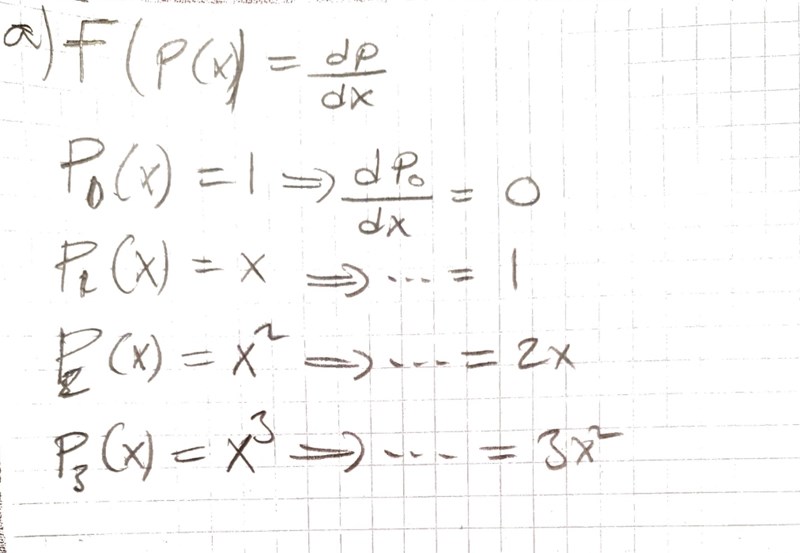 a) F(P(x) = dp/dx
P₀(x) = 1 ⇒ dP₀/dx = 0
P₁(x) = x ⇒ ... = 1
P₂(x) = x² ⇒ ... = 2x
P₃(x) = x³ ⇒ ... = 3x²